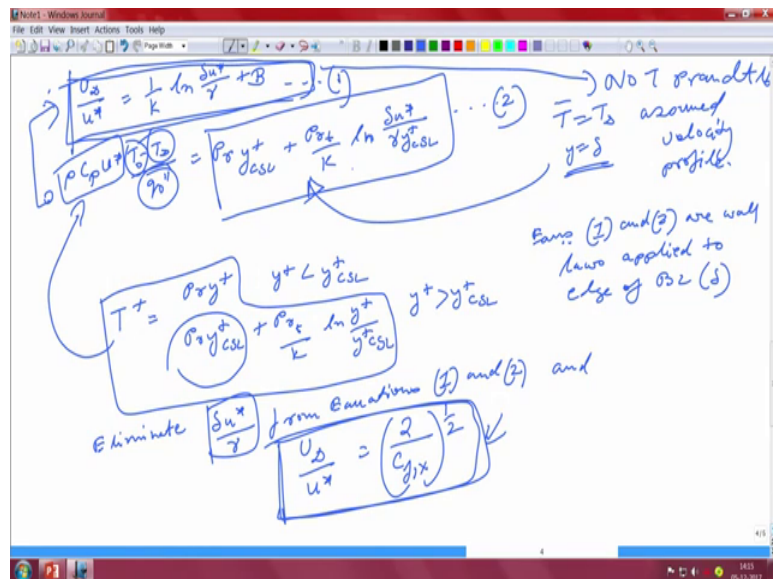 Note1 - Windows Journal
File Edit View Insert Actions Tools Help
Page Width
U∞/u* = 1/K ln δu*/γ + B --- (1)
→ NOT Prandtl's
assumed
velocity
profile.
ρ Cp u* (T0 - T∞)/q0" = Pr y+CSL + Prt/K ln δu*/γ y+CSL ... (2)
T̄ = T∞
y = δ
Eqns (1) and (2) are wall
laws applied to
edge of BL (δ)
T+ = Pr y+ y+ < y+CSL
Pr y+CSL + Prt/K ln y+/y+CSL y+ > y+CSL
Eliminate δu*/γ from Equations (1) and (2) and
U∞/u* = (2/Cf,x)^1/2
4
4/5
14:15
05-12-2017